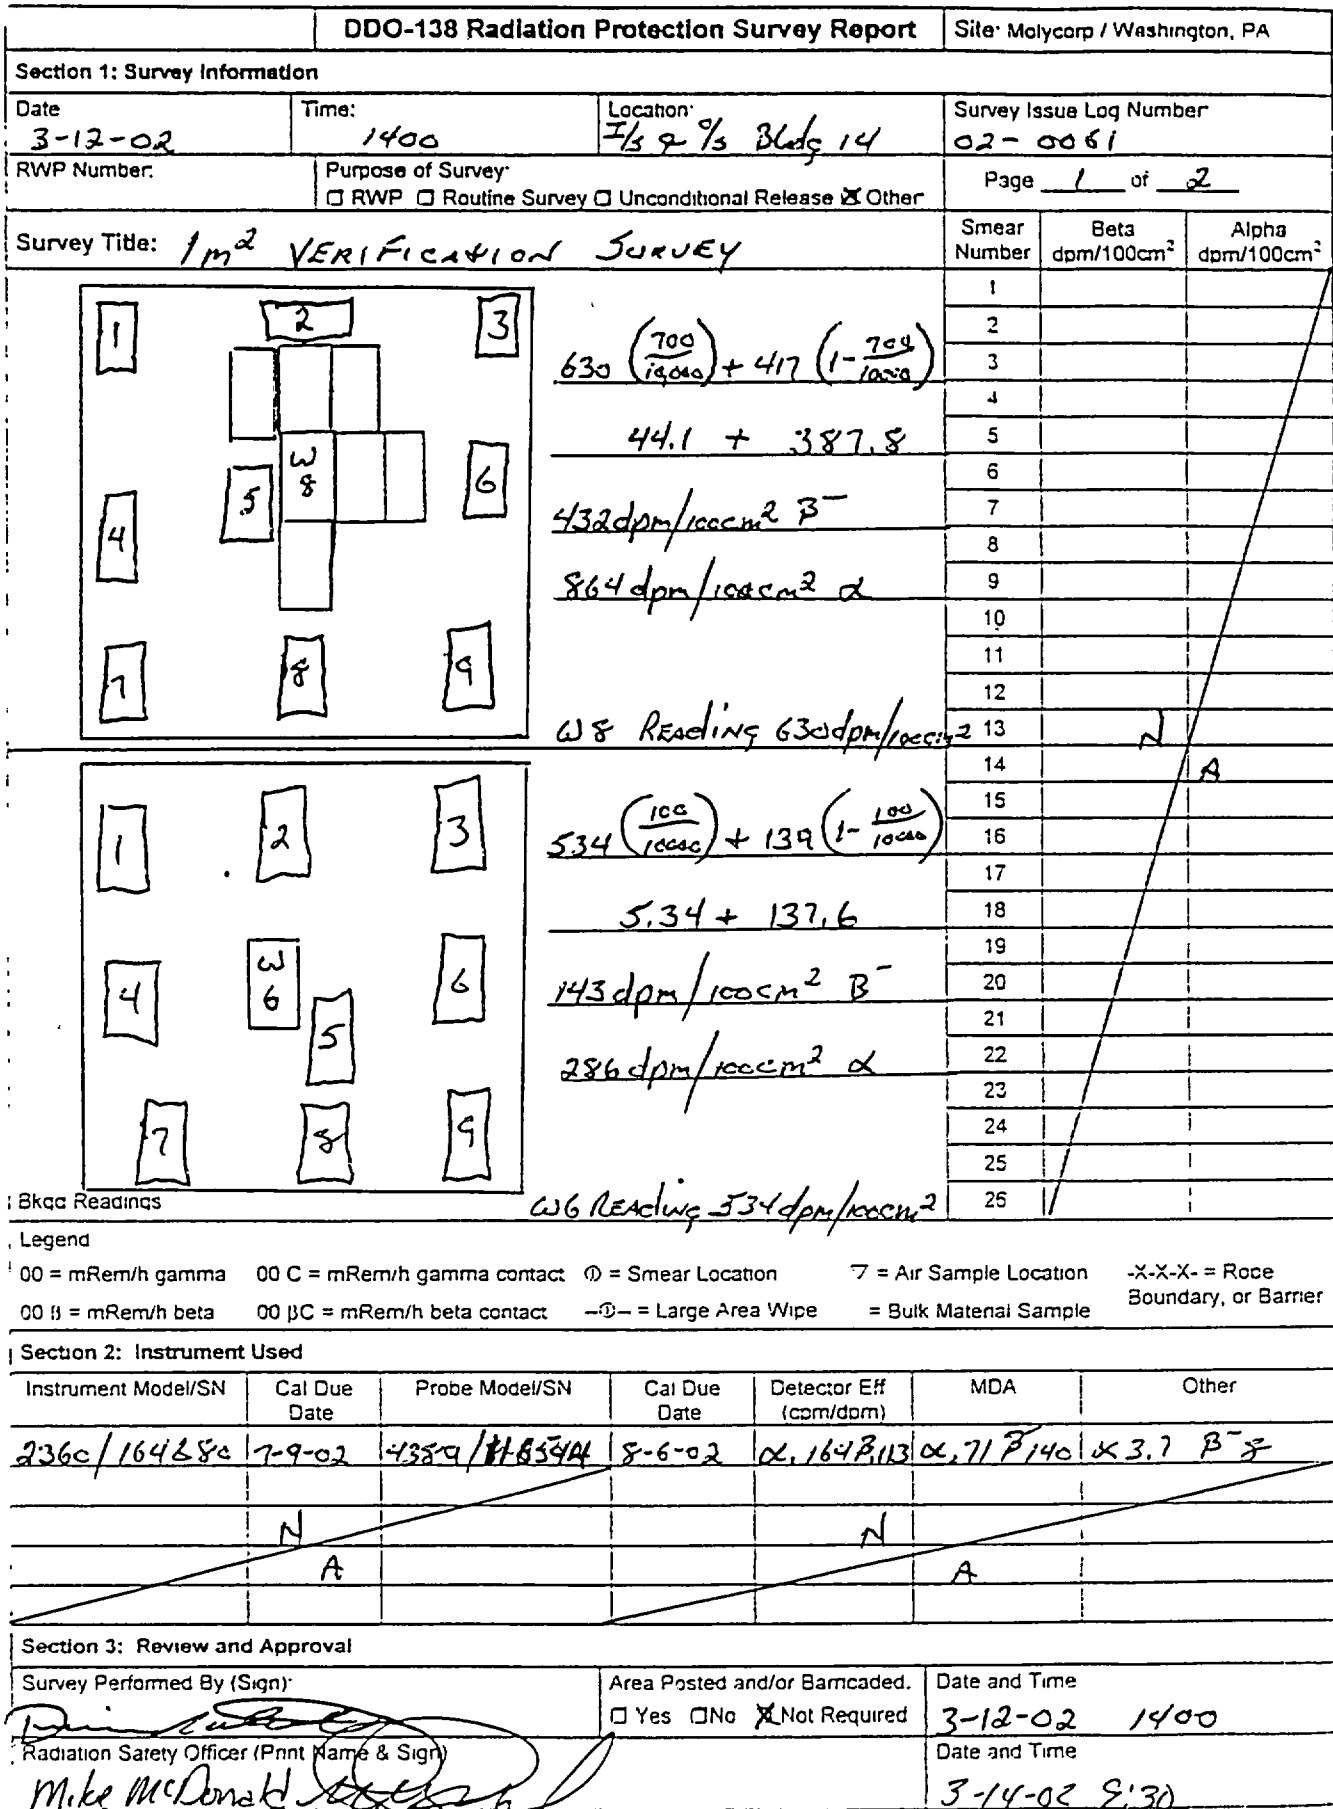 DDO-138 Radiation Protection Survey Report
Site: Molycorp / Washington, PA
Section 1: Survey Information
Date
3-12-02
Time:
1400
Location:
I/s & O/s Bldg 14
Survey Issue Log Number
02-0061
RWP Number:
Purpose of Survey:
☐ RWP ☐ Routine Survey ☐ Unconditional Release ☒ Other
Page 1 of 2
Survey Title: 1m² VERIFICATION SURVEY
Smear Number
Beta dpm/100cm²
Alpha dpm/100cm²
1 2 3
W 8
5 6
4
7 8 9
630 (700/10,000) + 417 (1-700/10000)
44.1 + 387.8
432 dpm/100cm² β⁻
864 dpm/100cm² α
W8 Reading 630dpm/100cm²
1 2 3
W 6
4 6
5
7 8 9
534 (100/10000) + 139 (1-100/10000)
5.34 + 137.6
143 dpm/100cm² B⁻
286 dpm/100cm² α
W6 Reading 534 dpm/100cm²
Bkgd Readings
1
2
3
4
5
6
7
8
9
10
11
12
13 N
14 A
15
16
17
18
19
20
21
22
23
24
25
26
Legend
00 = mRem/h gamma 00 C = mRem/h gamma contact ① = Smear Location ▽ = Air Sample Location -X-X-X- = Rope Boundary, or Barrier
00 β = mRem/h beta 00 βC = mRem/h beta contact –①– = Large Area Wipe = Bulk Material Sample
Section 2: Instrument Used
Instrument Model/SN
Cal Due Date
Probe Model/SN
Cal Due Date
Detector Eff (cpm/dpm)
MDA
Other
2360/164680 7-9-02 4389/ 8-6-02 α.164 β.113 α.71 β⁻140 α 3.7 β⁻
N
A
N
A
Section 3: Review and Approval
Survey Performed By (Sign):
Area Posted and/or Barricaded.
☐ Yes ☐ No ☒ Not Required
Date and Time
3-12-02 1400
Radiation Safety Officer (Print Name & Sign)
Mike McDonald
Date and Time
3-14-02 9:30